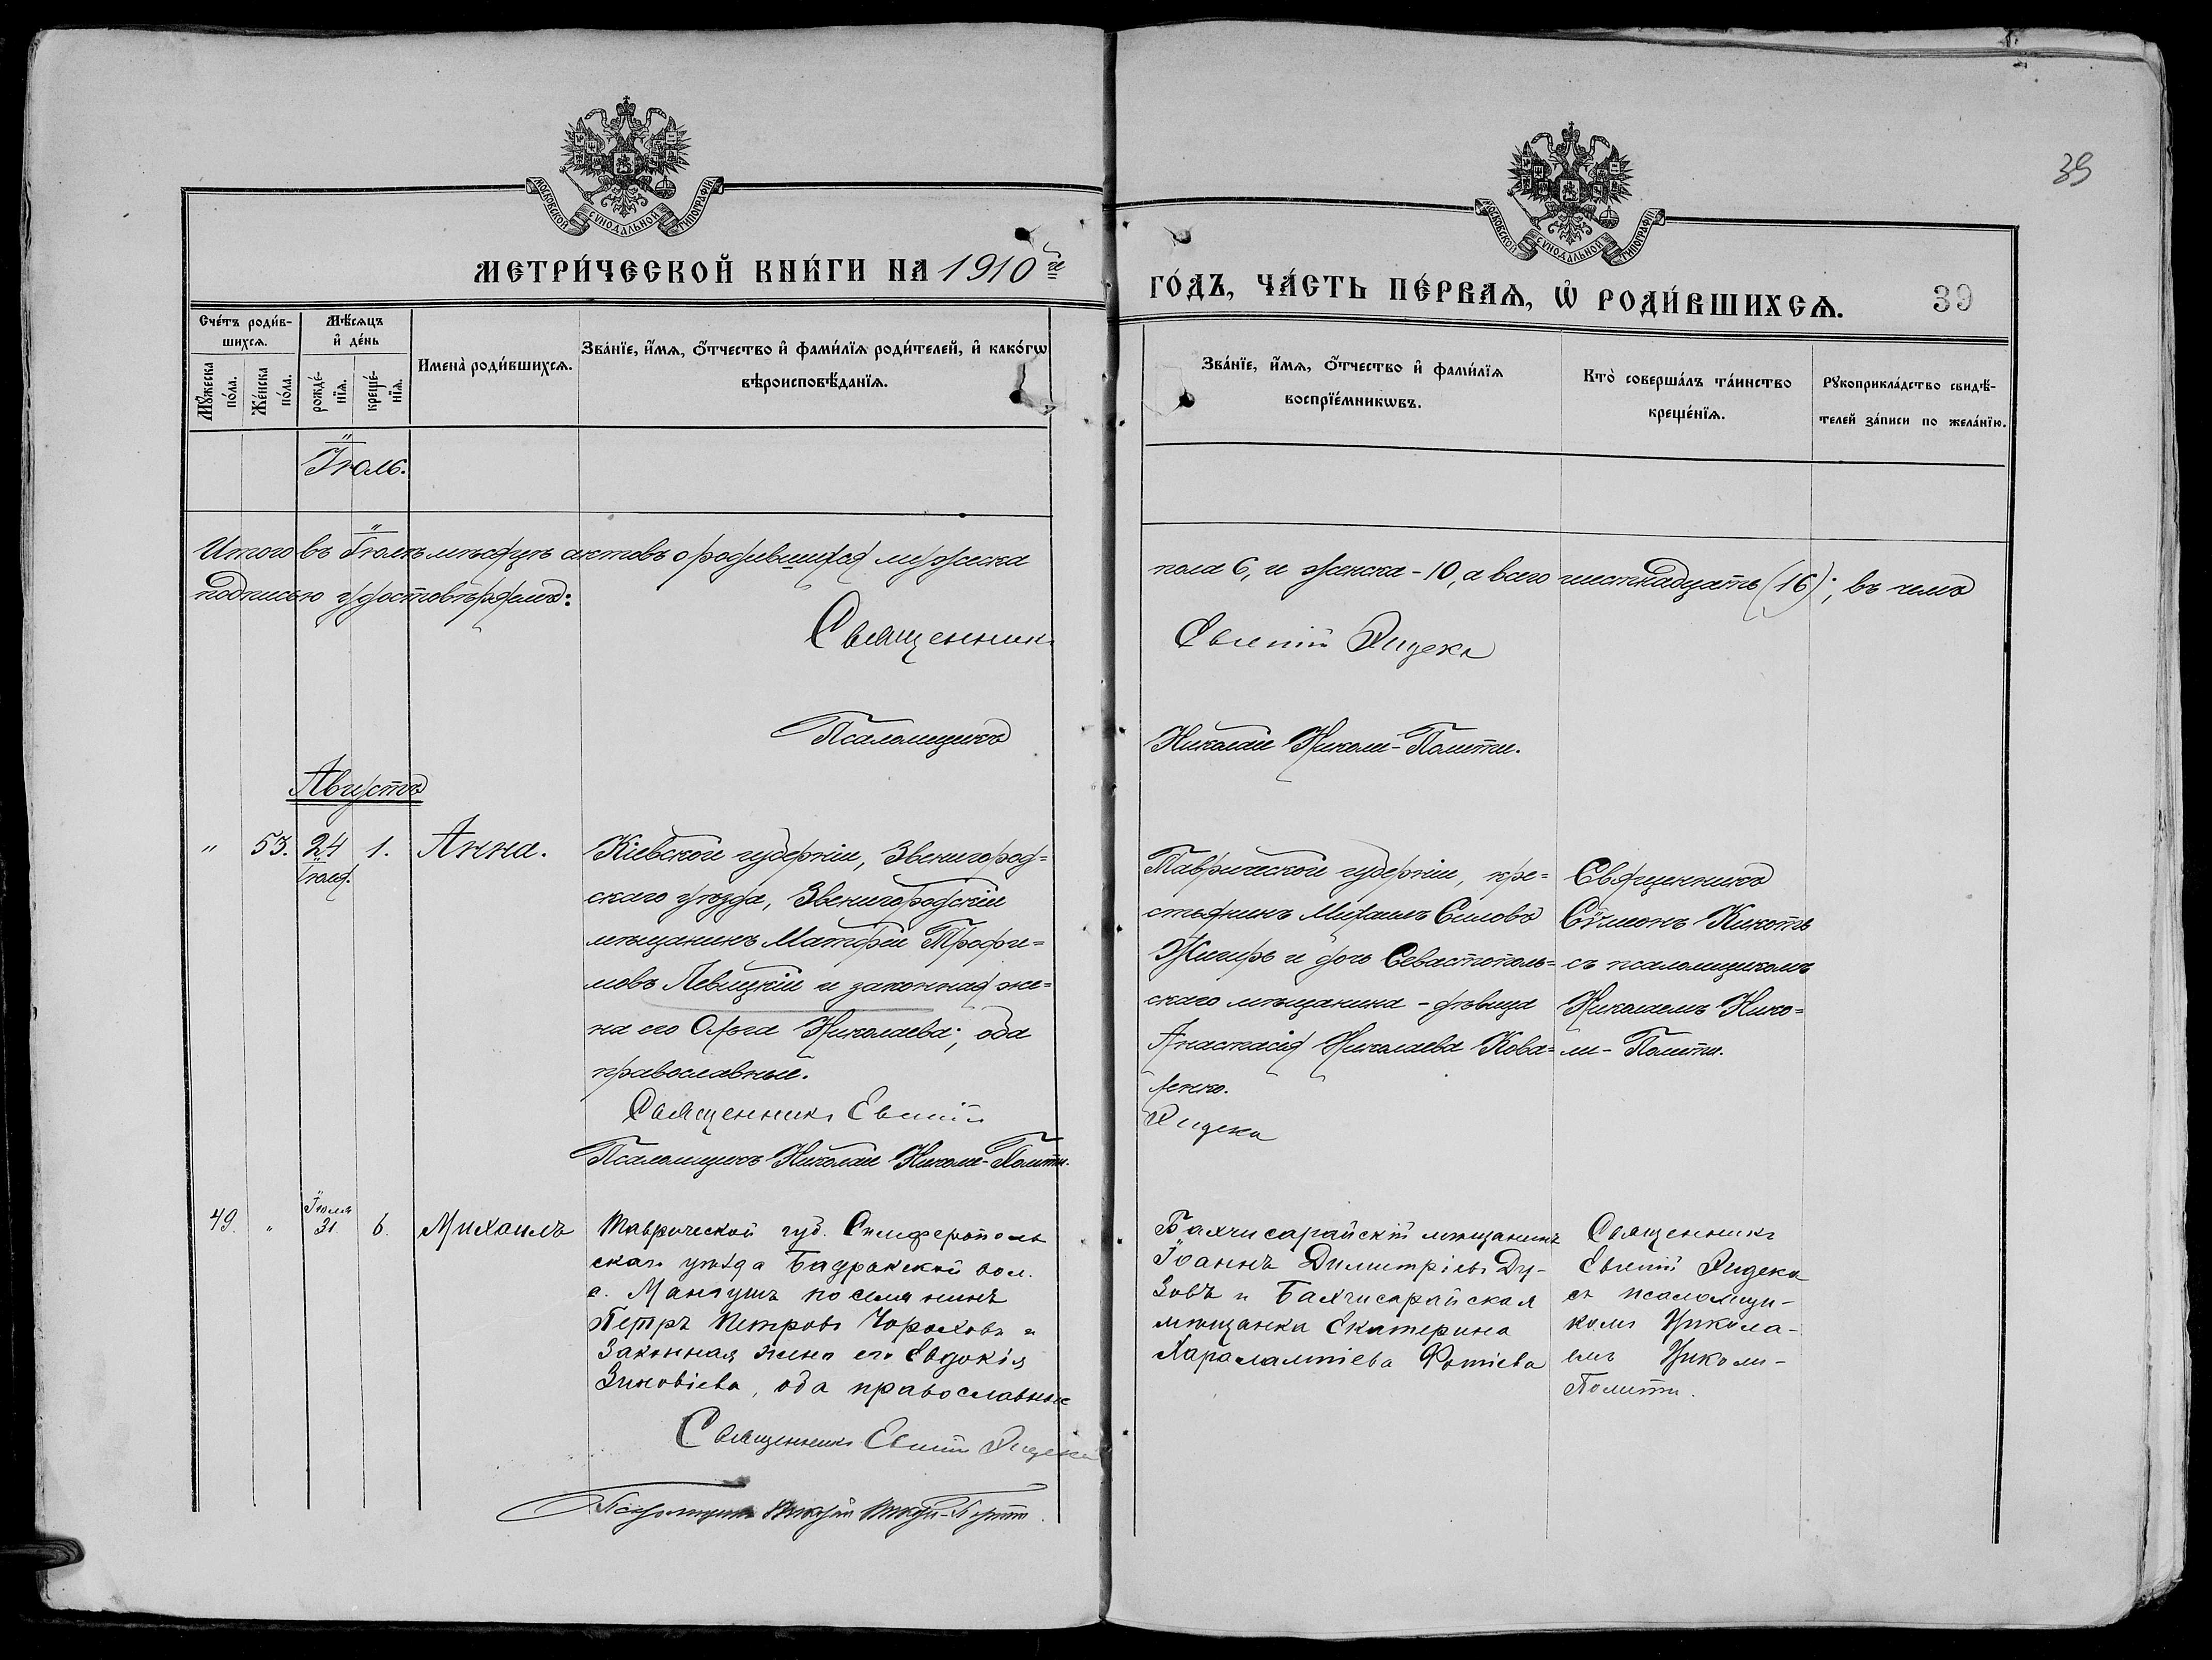 39
МОСКОВСКОЙ СѴНОДАЛЬНОЙ ТИПОГРАФІИ
МОСКОВСКОЙ СѴНОДАЛЬНОЙ ТИПОГРАФІИ
МЕТРИ́ЧЕСКОЙ КНИ́ГИ НА 1910й
ГО́ДЪ, ЧА́СТЬ ПЕ́РВАѦ, Ѽ РОДИ́ВШИХСѦ.
39
Сче́тъ роди́в-
шихсѧ.
Мꙋ́жеска по́ла.
Же́нска по́ла.
Мѣ́сѧцъ
и҆ де́нь
рожде́-
нїѧ.
креще́-
нїѧ.
Имена̀ роди́вшихсѧ.
Зва́нїе, и҆́мѧ, ѻ҆́тчество и҆ фами́лїѧ роди́телей, и҆ како́гѡ
вѣроисповѣ́данїѧ.
Зва́нїе, и҆́мѧ, ѻ҆́тчество и҆ фами́лїѧ
воспрїе́мникѡвъ.
Кто̀ соверша́лъ та́инство
креще́нїѧ.
Рꙋкоприкла́дство свидѣ́-
телей за́писи по жела́нїю.
Іюль.
Итого въ Іюлѣ мѣсяцѣ актовъ о родившихся мужеска
пола 6, и женска - 10, а всего шестнадцать (16); въ чемъ
подписью удостовѣряемъ:
Священникъ
Евгеній
Псаломщикъ
Николай Николи-Полити.
Августъ
" 53. 24 1. Анна.
Іюля.
Кіевской губерніи, Звенигород=
скаго уѣзда, Звенигородскій
мѣщанинъ Матфей Трофи=
мовъ Левицкій и законная же=
на его Ольга Николаева; оба
православные.
Священникъ Евгеній
Псаломщикъ Николай Николи-Полити.
Таврической губерніи, кре=
стьянинъ Михаилъ Симовъ
Жигирь и дочь Севастополь=
скаго мѣщанина - дѣвица
Анастасія Николаева Кова=
ленко.
Священникъ
Сѵмеонъ Кикоть
съ псаломщикомъ
Николаемъ Нико=
ли-Полити.
49. " Іюля
31. 6. Михаилъ
Таврической губ. Симферополь
скаго уѣзда Бадракской вол.
с. Мангушъ поселянинъ
Петръ Петровъ Чороховъ и
Законная жена его Евдокія
Зиновіева, оба православные
Священникъ Евгеній
Псаломщикъ Николай Николи-Полити.
Бахчисарайскій мѣщанинъ
Іоаннъ Димитріевъ Ду-
зовъ и Бахчисарайская
мѣщанка Екатерина
Харалампіева Фотіева
Священникъ
Евгеній
съ псаломщи-
комъ Никола-
емъ Николи-
Полити.